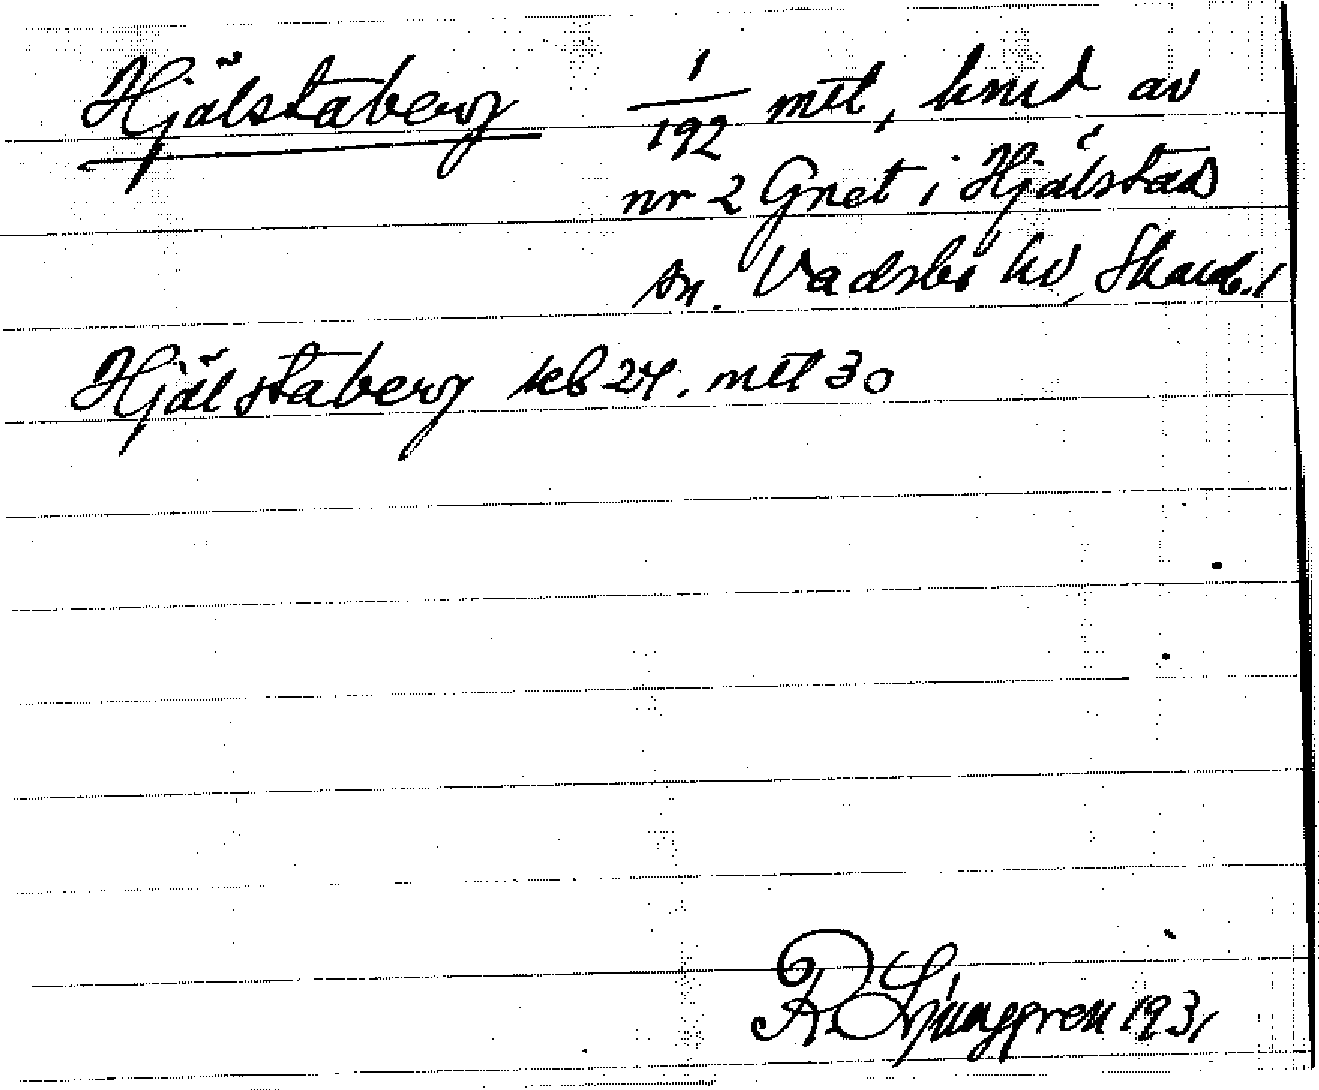 Hjälstaberg 1/192 mtl, hmd av
nr 2 Gret i Hjälstads
sn. Vadsbo hd, Skarab. l
Hjälstaberg kb 24. mtl 30
R. Ljunggren 1931